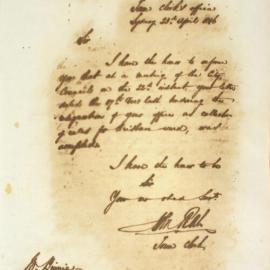 Town Clerk's Office
Sydney 25th April 1846
Sir
I have the honor to inform
you that at a meeting of the City
Council on the 22d instant your letter
dated the 17th tendering the
resignation of your office as collector
of for Brisbane ward, was
accepted.
I have the honor to be
Sir
Your mo obed Servt.
Town Clerk